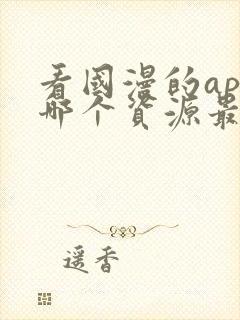 看國漫的ap
哪个资源最
遥香